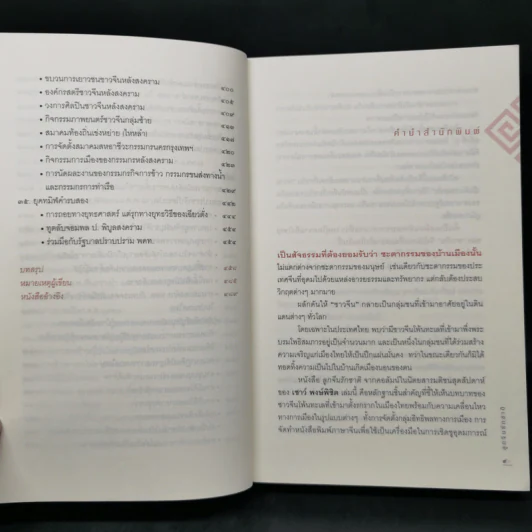 • ขบวนการเยาวชนชาวจีนหลังสงคราม ๔๐๐
• องค์กรสตรีชาวจีนหลังสงคราม ๔๐๕
• วงการศิลปินชาวจีนหลังสงคราม ๔๐๗
• กิจกรรมภาพยนตร์ชาวจีนกลุ่มซ้าย
• สมาคมท้องถิ่นแข่งหย่าย (ไหหลำ)
• การจัดตั้งสมาคมสหอาชีวะกรรมกรนครกรุงเทพฯ ๔๒๐
• กิจกรรมการเมืองของกรรมกรหลังสงคราม
• การนัดหยุดงานของกรรมกรโรงสีข้าว กรรมกรขนส่งทางน้ำ
และกรรมกรการท่าเรือ ๔๒๙
๑๕. ยุคทมิฬคำรบสอง
• การถอยทางยุทธศาสตร์ แต่รุกทางยุทธวิธีของเฉียวตั่ง
• ทูตลับจอมพล ป. พิบูลสงคราม
• ร่วมมือกับรัฐบาลปราบปราม พคท.
บทสรุป
หมายเหตุผู้เขียน
หนังสืออ้างอิง
คำนำสำนักพิมพ์
เป็นสัจธรรมที่ต้องยอมรับว่า ชะตากรรมของบ้านเมืองนั้น
ไม่แตกต่างจากชะตากรรมของมนุษย์ เช่นเดียวกับชะตากรรมของประ
เทศจีนที่อุดมไปด้วยแหล่งอารยธรรมและทรัพยากร แต่กลับต้องประสบ
วิกฤตต่างๆ มากมาย
ผลักดันให้ “ชาวจีน” กลายเป็นกลุ่มชนที่เข้ามาอาศัยอยู่ในดิน
แดนต่างๆ ทั่วโลก
โดยเฉพาะในประเทศไทย พบว่ามีชาวจีนโพ้นทะเลที่เข้ามาพึ่งพระ
บรมโพธิสมภารอยู่เป็นจำนวนมาก และเป็นหนึ่งในกลุ่มชนที่ได้ร่วมสร้าง
ความเจริญแก่เมืองไทยให้เป็นปึกแผ่นมั่นคง ทว่าในขณะเดียวกันก็มิได้
ทอดทิ้งความเป็นไปในบ้านเกิดเมืองนอนของตน
หนังสือ ลูกจีนรักชาติ จากคอลัมน์ในนิตยสารมติชนสุดสัปดาห์
ของ เชาว์ พงษ์พิชิต เล่มนี้ คือหลักฐานชิ้นสำคัญที่ชี้ให้เห็นบทบาทของ
ชาวจีนโพ้นทะเลที่เข้ามาตั้งรกรากในเมืองไทยพร้อมกับความเคลื่อนไหว
ทางการเมืองในรูปแบบต่างๆ ทั้งการจัดตั้งกลุ่มอิทธิพลทางการเมือง การ
จัดทำหนังสือพิมพ์ภาษาจีนเพื่อใช้เป็นเครื่องมือในการเชิดชูอุดมการณ์
ลูกจีนรักชาติ